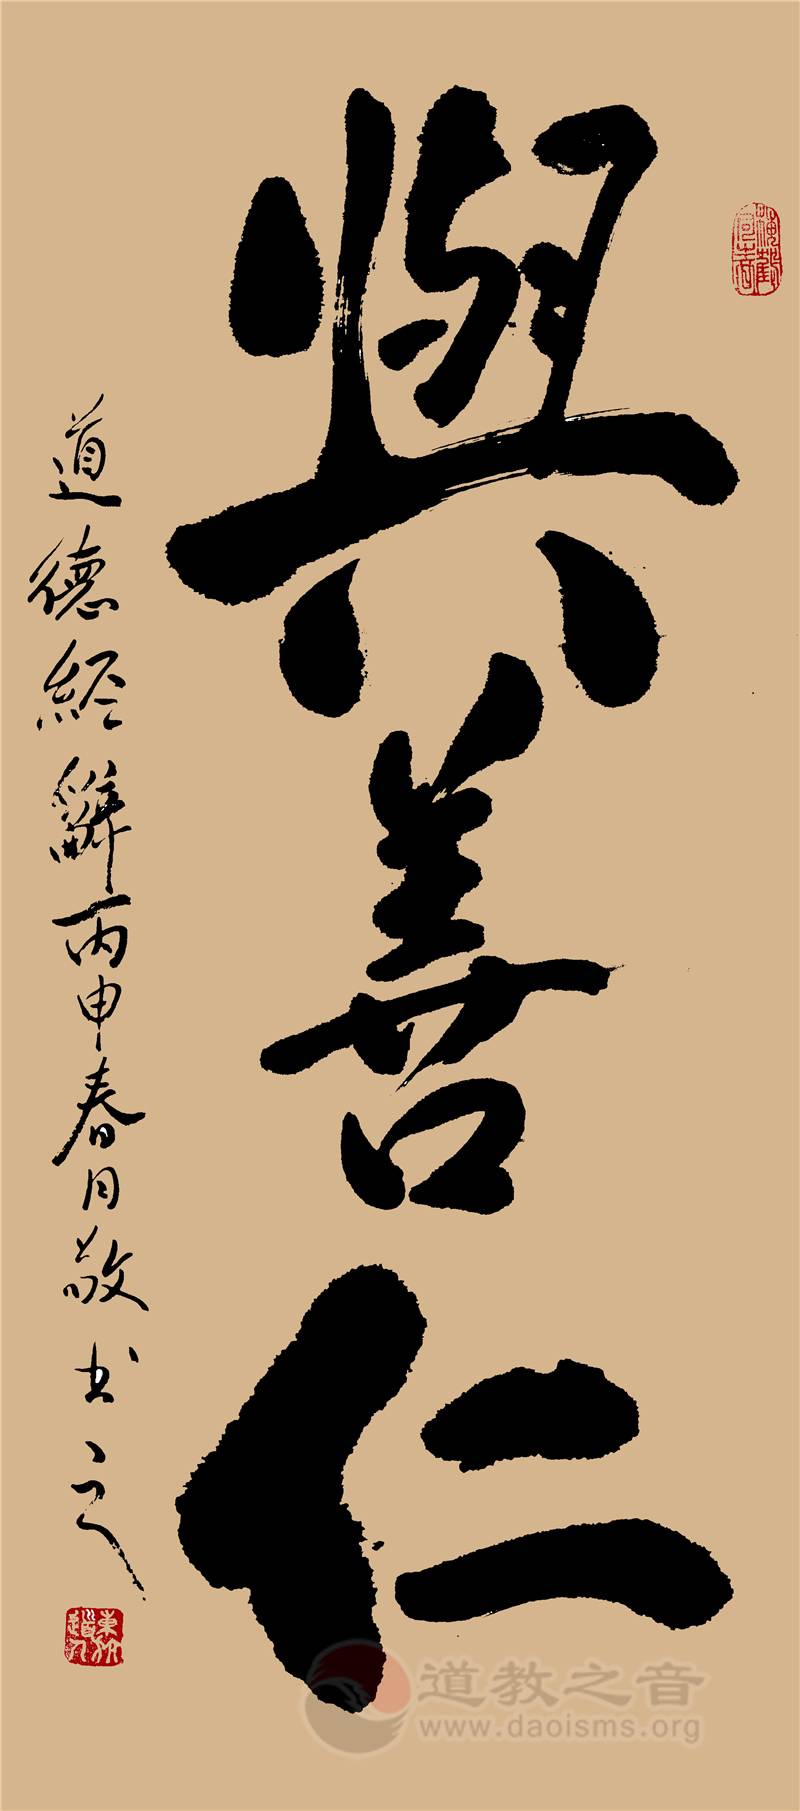 與善仁
道德經辭丙申春月敬书之
道教之音
www.daoisms.org